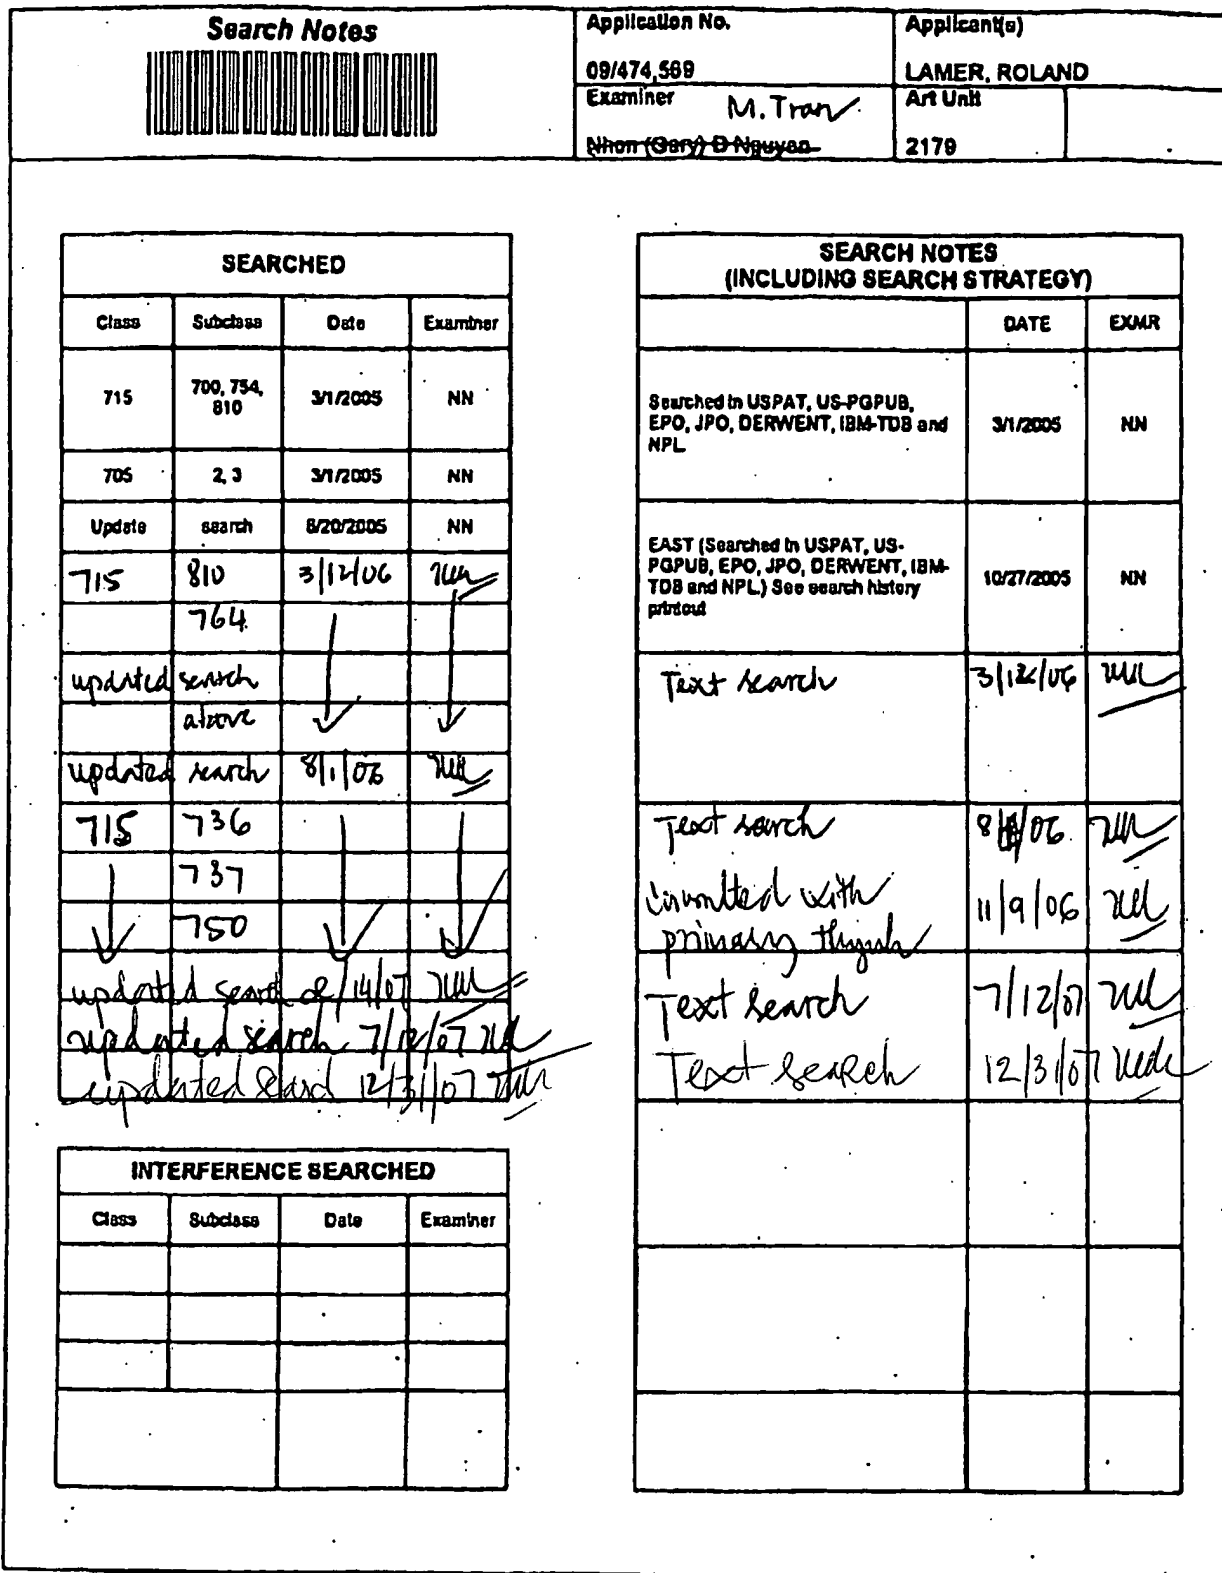 Search Notes
Application No.
09/474,569
Applicant(s)
LAMER, ROLAND
Examiner M. Tran
Nhon (Gary) D Nguyen
Art Unit
2179
SEARCHED
Class Subclass Date Examiner
715 700, 754, 810 3/1/2005 NN
705 2, 3 3/1/2005 NN
Update search 8/20/2005 NN
715 810 3/12/06
764
updated search
above
updated search 8/1/06
715 736
737
750
updated search 2/14/07
updated search 7/12/07
updated search 12/31/07
INTERFERENCE SEARCHED
Class Subclass Date Examiner
SEARCH NOTES
(INCLUDING SEARCH STRATEGY)
DATE EXMR
Searched in USPAT, US-PGPUB,
EPO, JPO, DERWENT, IBM-TDB and
NPL
3/1/2005 NN
EAST (Searched in USPAT, US-
PGPUB, EPO, JPO, DERWENT, IBM-
TDB and NPL) See search history
printout
10/27/2005 NN
Text search 3/12/06
Text search 8/ /06
with 11/9/06
primary
Text search 7/12/07
Text search 12/31/07